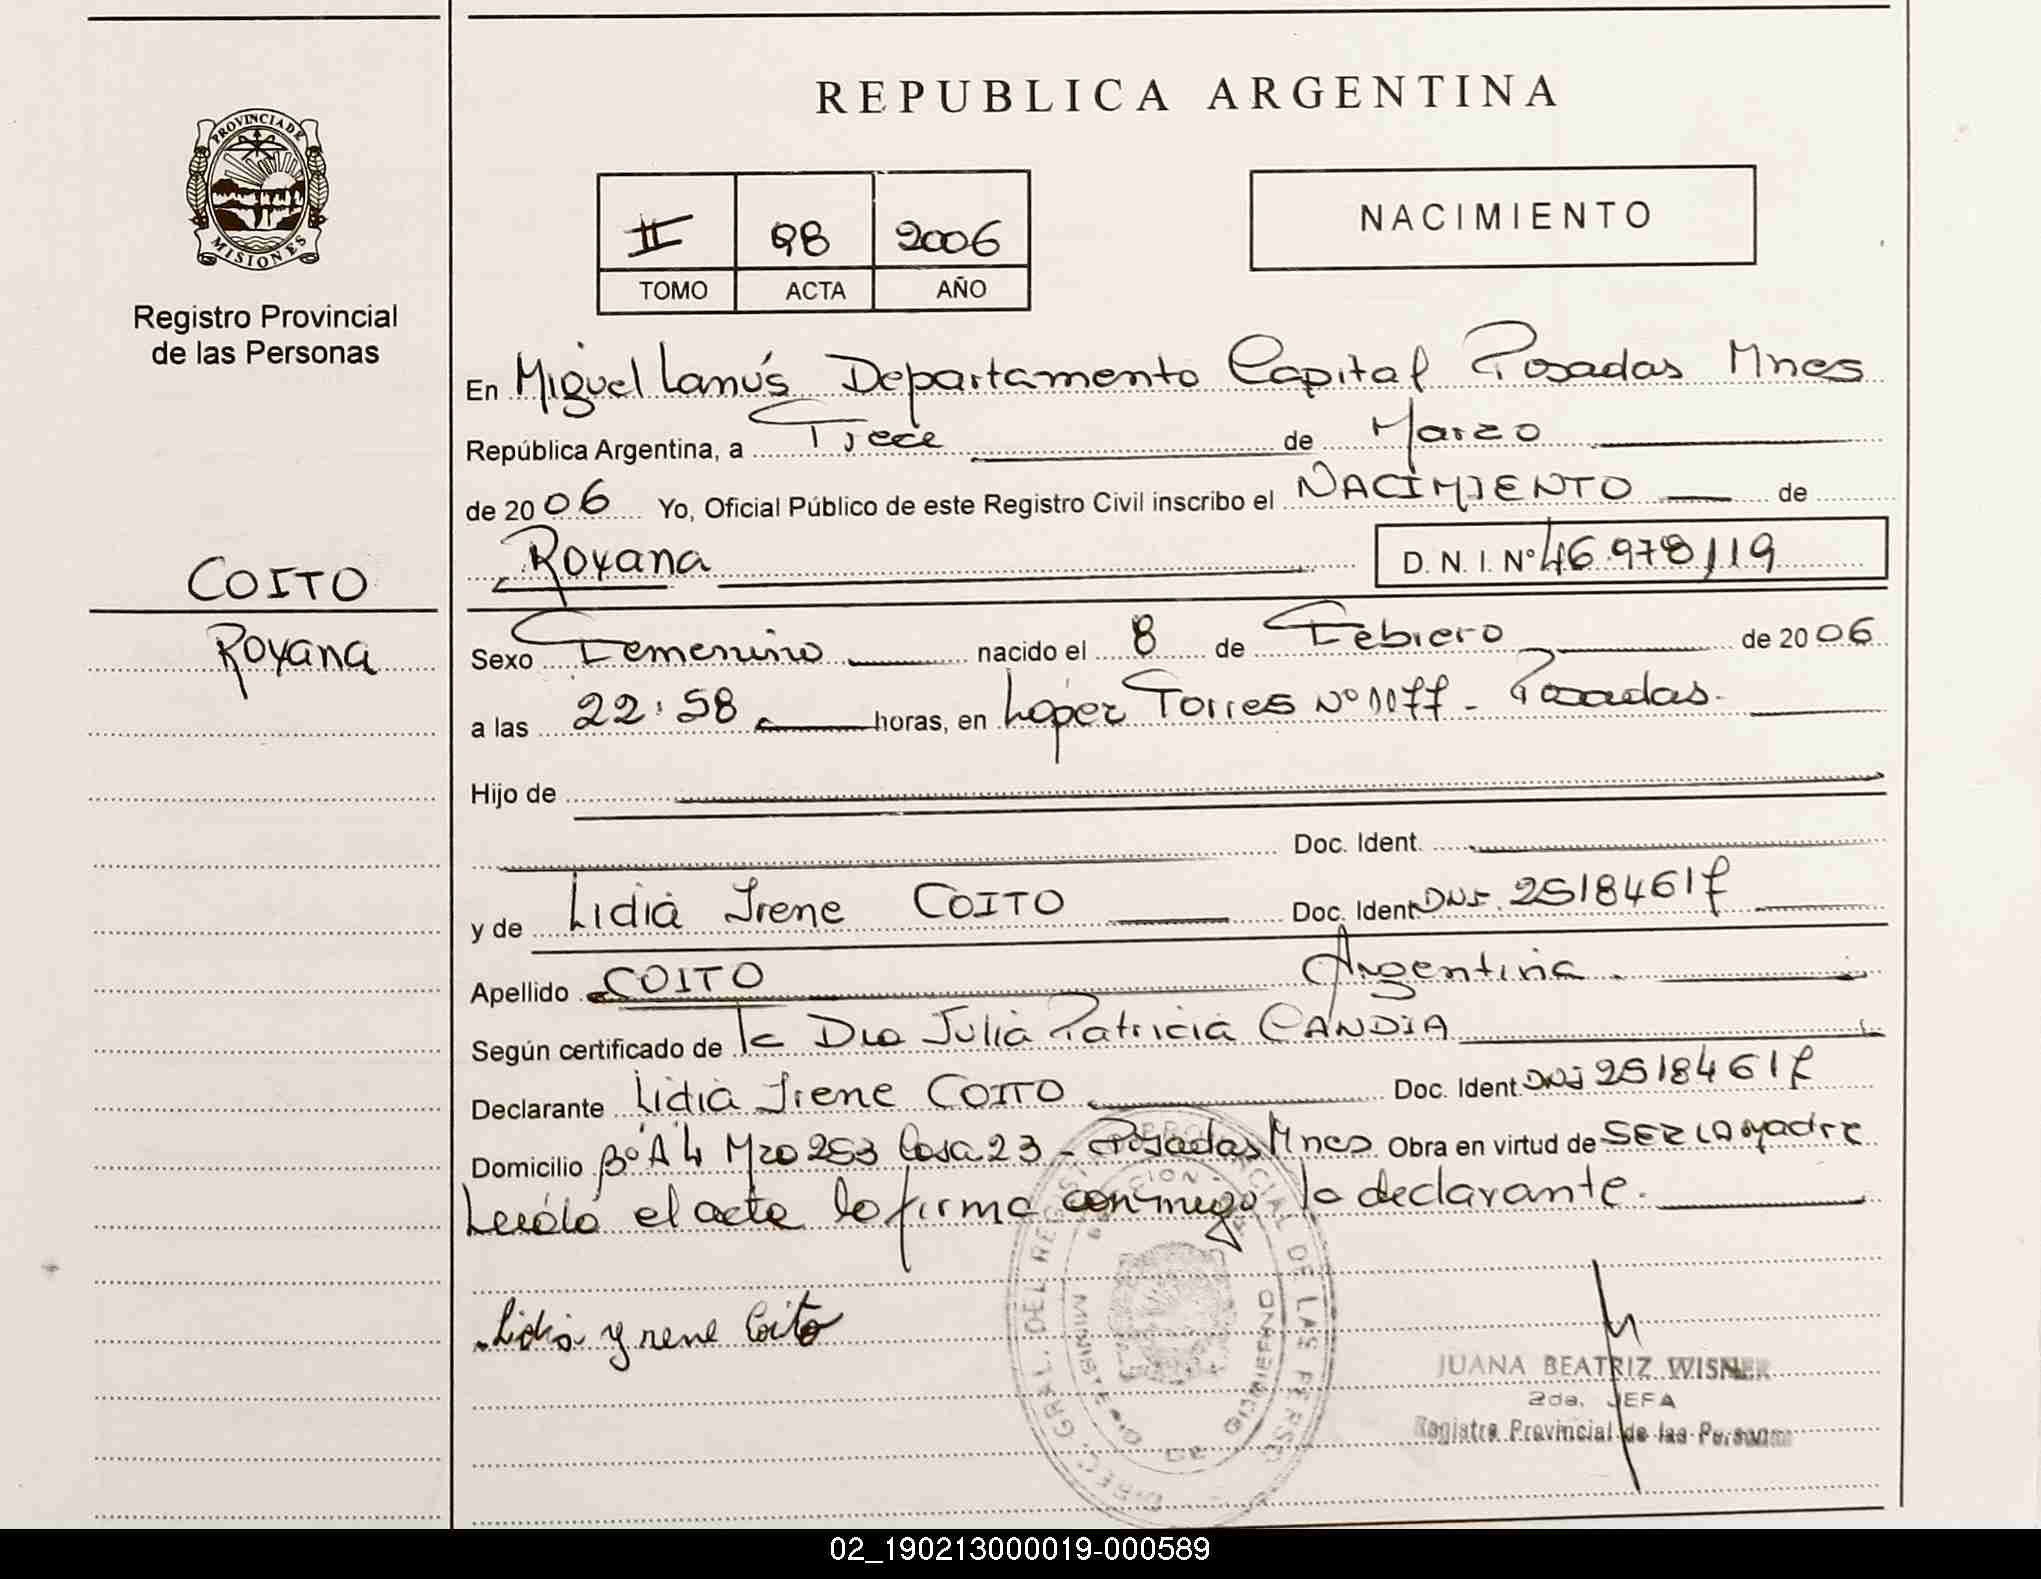 REPUBLICA ARGENTINA
PROVINCIA DE
MISIONES
Registro Provincial
de las Personas
II 98 2006
TOMO ACTA AÑO
NACIMIENTO
En Miguel Lanús Departamento Capital Posadas Mnes
República Argentina, a Trece de Marzo
de 2006 Yo, Oficial Público de este Registro Civil inscribo el NACIMIENTO de
COITO
Roxana D. N. I. Nº 46.978119
Roxana
Sexo Femenino nacido el 8 de Febrero de 2006
a las 22:58 horas, en López Torres Nº 1077 - Posadas.
Hijo de
Doc. Ident.
y de Lidia Irene COITO Doc. Ident DNI. 25184617
Apellido COITO Argentina.
Según certificado de la Dra Julia Patricia CANDIA
Declarante Lidia Irene COITO Doc. Ident. DNI 25184617
Domicilio Bº A 4 Mza 253 Casa 23 - Posadas Mnes Obra en virtud de SER LA Madre
el acta la firma conmigo la declarante.
Lidia Yrene Coito
JUANA BEATRIZ WISNER
2da. JEFA
Registro Provincial de las Personas
02_190213000019-000589